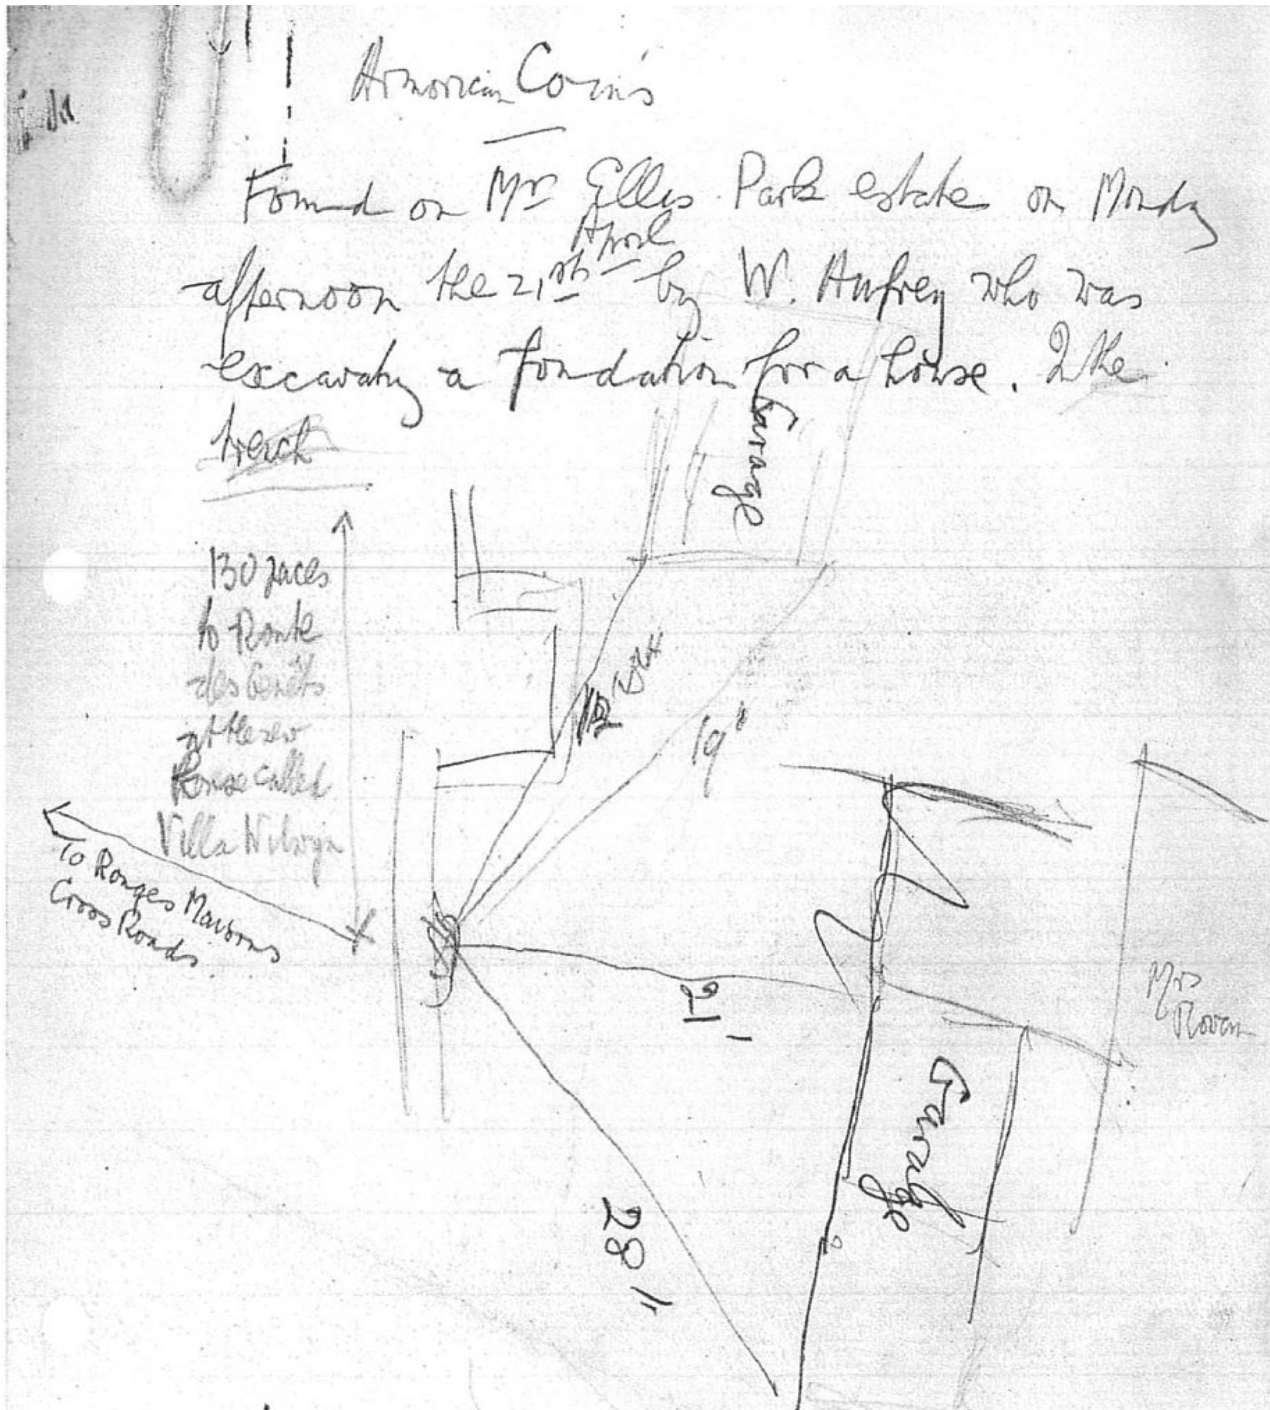 Armorican Coins
Found on Mr Ellis Park estate on Monday
April
afternoon the 21st by W. Aufrey who was
excavating a foundation for a house. In the
trench
Garage
130 paces
to Route
des Genêts
at the new
House called
Villa
19'
To Rouges Maisons
Cross Roads
21'
Mrs
Garage
28"